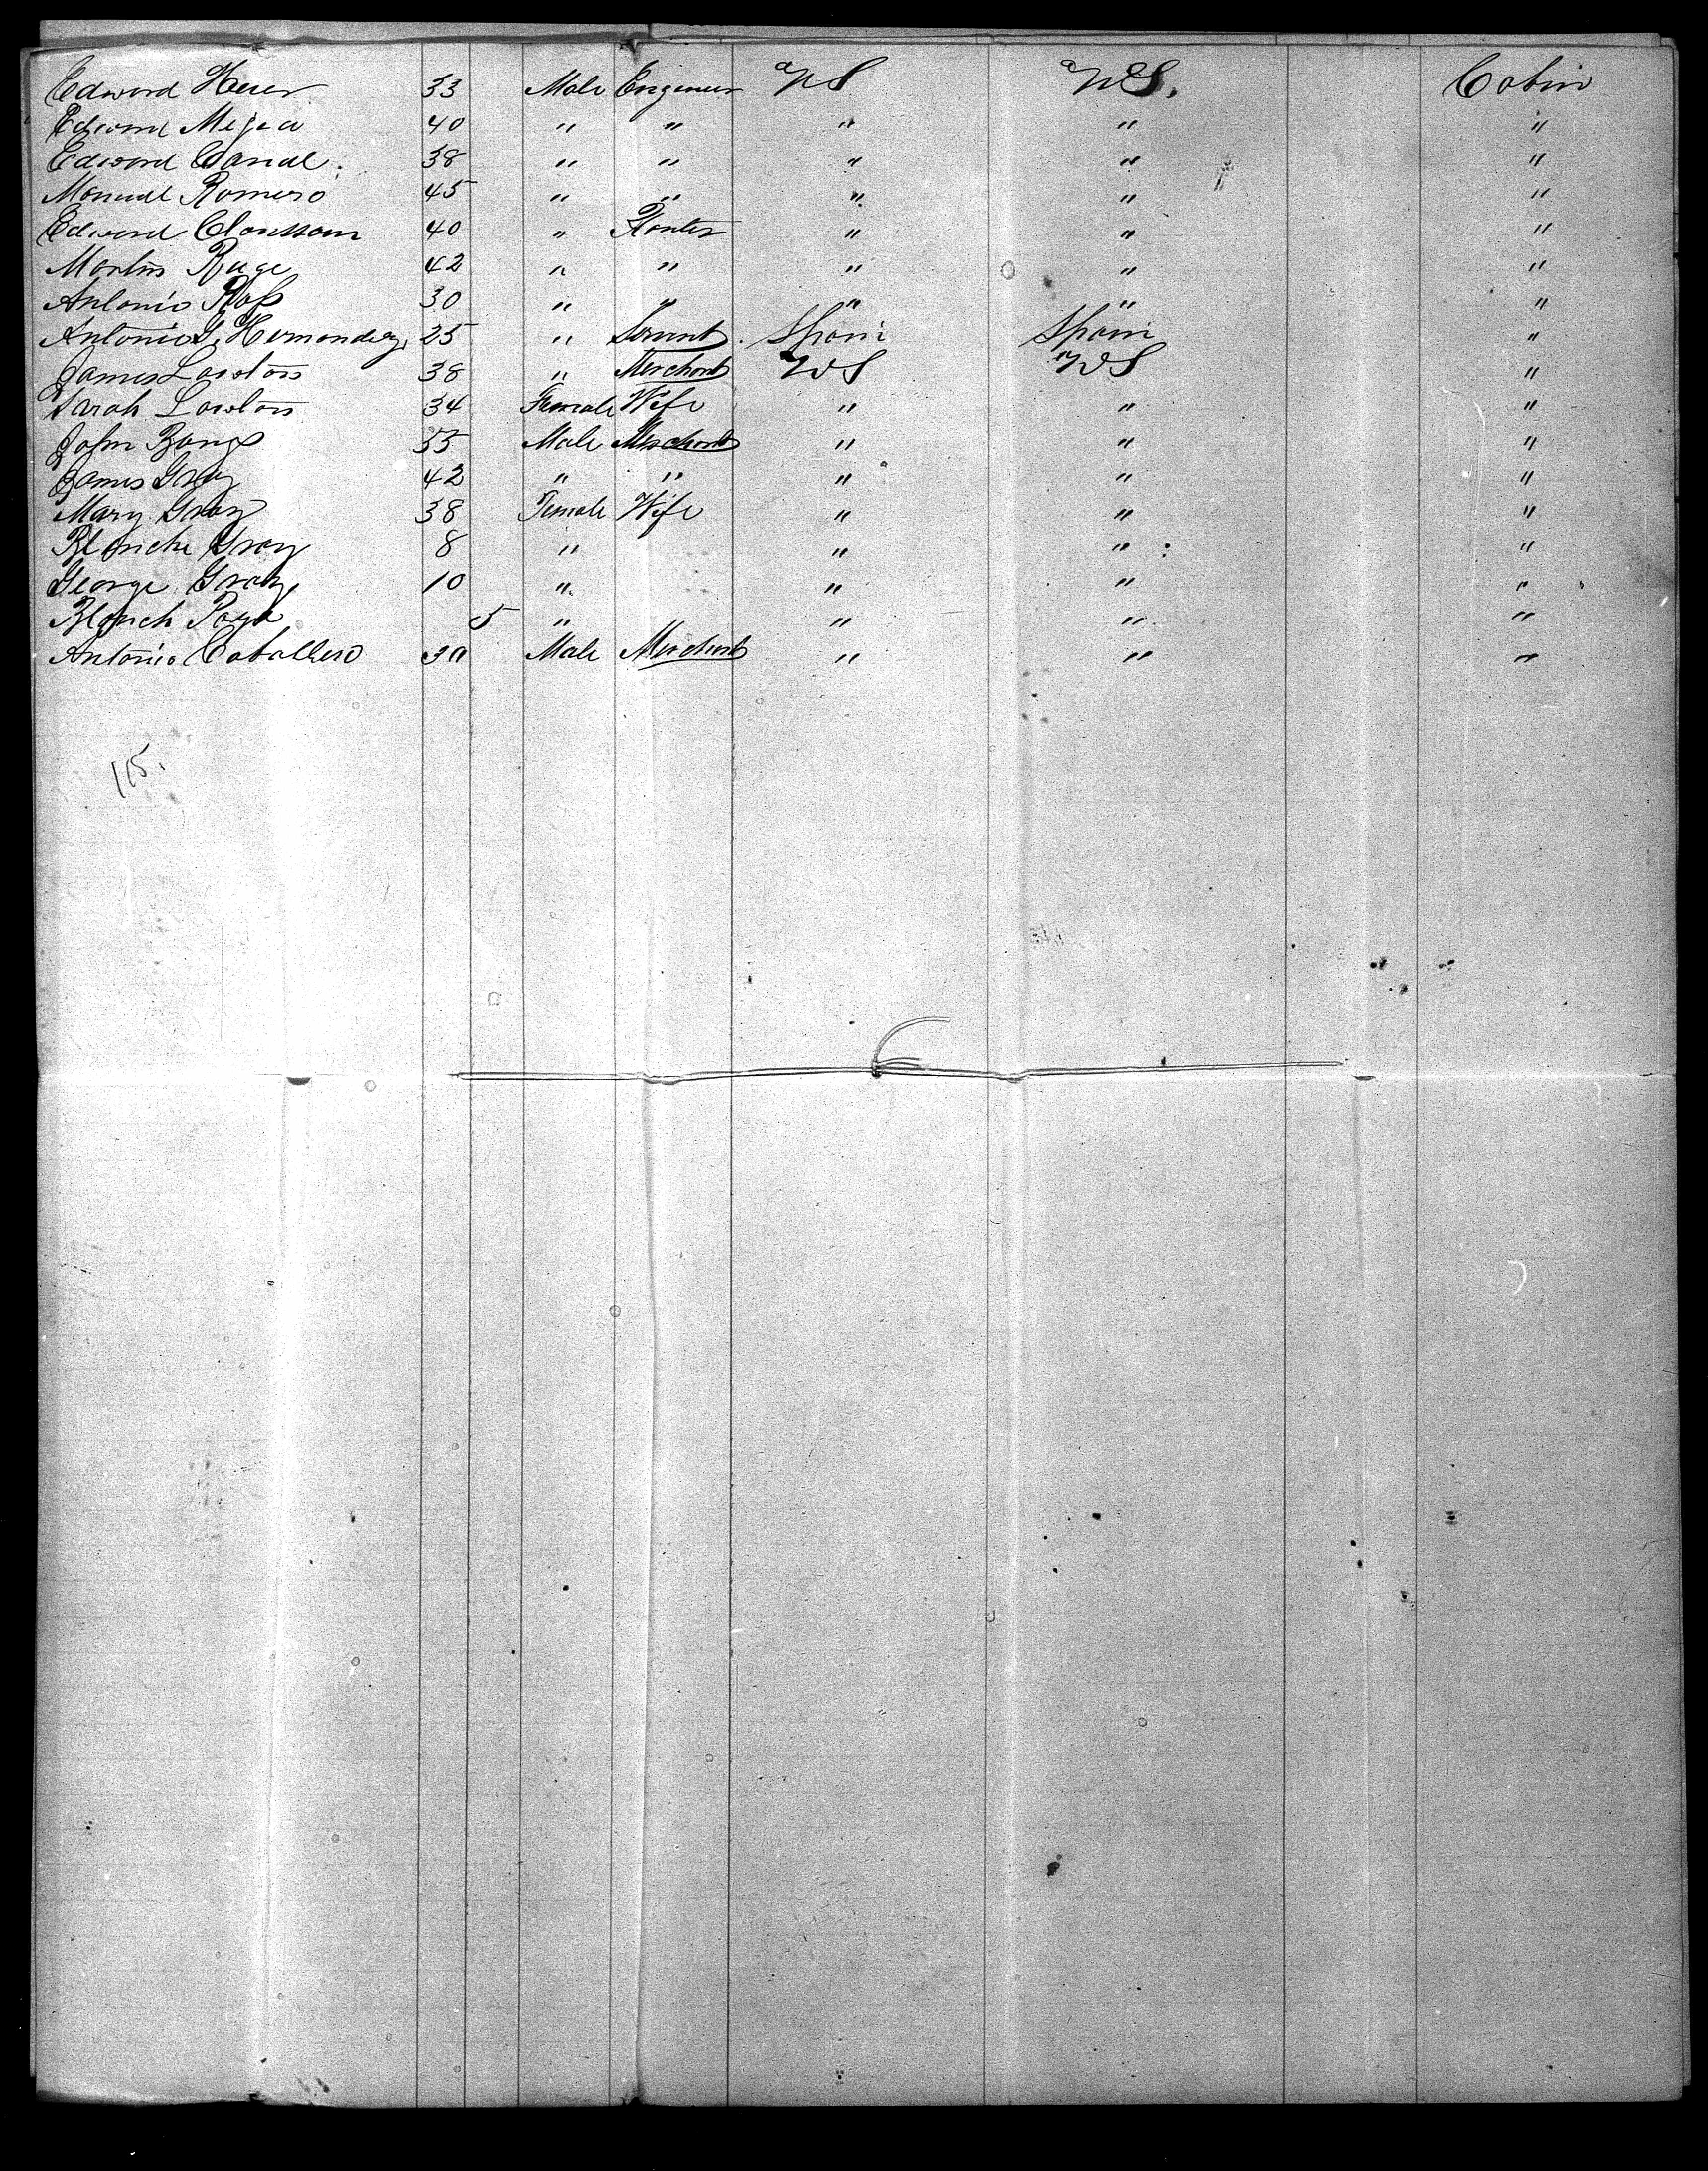 Edward Heuer 33 Male Engineer US US. Cabin
Edward Mejia 40 " " " " "
Edward Canal 38 " " " " "
Manuel Romero 45 " " " " "
Edward Claussom 40 " Planter " " "
Martin Ruge 42 " " " " "
Antonio Ross 30 " " " " "
Antonio G. Hernandez 25 " Servant Spain Spain "
James Lawton 38 " Merchant US US "
Sarah Lawton 34 Female Wife " " "
John Bangs 55 Male Merchant " " "
James Gray 42 " " " " "
Mary Gray 38 Female Wife " " "
Blanche Gray 8 " " " "
George Gray 10 " " " "
Blanch 5 " " " "
Antonio Caballero 30 Male Merchant " " "
115.